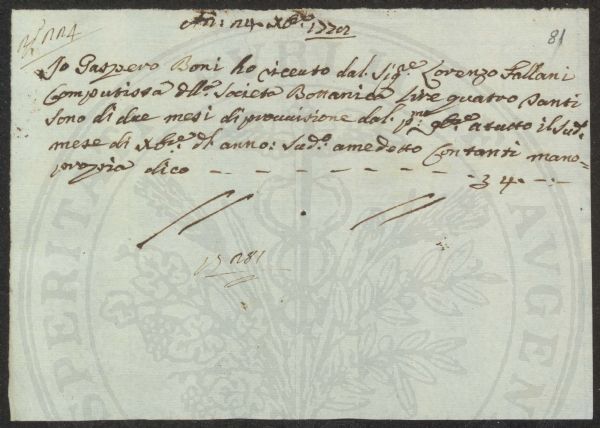 N.° 224
81
Adi: 24: Xbre: 1772
Io Gaspero Boni ho riceuto dal Sig.re Lorenzo Fallani
Computista dell.a Società Bottanica lire quatro
sono di due mesi di provvisione dal p.mo 9bre a tutto il sud.o
mese di Xbre dl anno: sud.o a me detto Contanti mano=
propria dico - - - - - - - - - 4 - -
281
SPERITA
VII
AVGEN